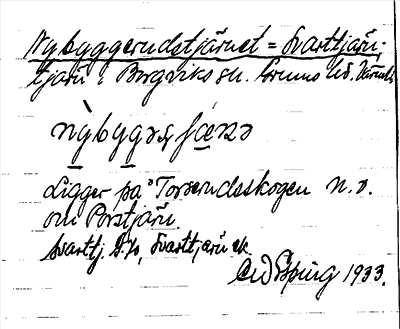 Nybyggerudstjärnet = Svarttjärn.
tjärn i Borgviks sn. Grums hd. Värml.
nỳbygəʂʃænə
Ligger på Torserudsskogen n.o.
om Porstjärn
Svarttj. G.k., Svarttjärn ek.
1933.